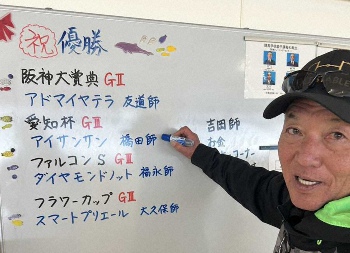 祝 優勝
阪神大賞典 GⅡ
アドマイヤテラ 友道師
愛知杯 GⅢ
アイサンサン 橋田師
ファルコンS GⅢ
ダイヤモンドノット 福永師
フラワーカップ GⅢ
スマートプリエール 大久保師
吉田師
お金
コーナー